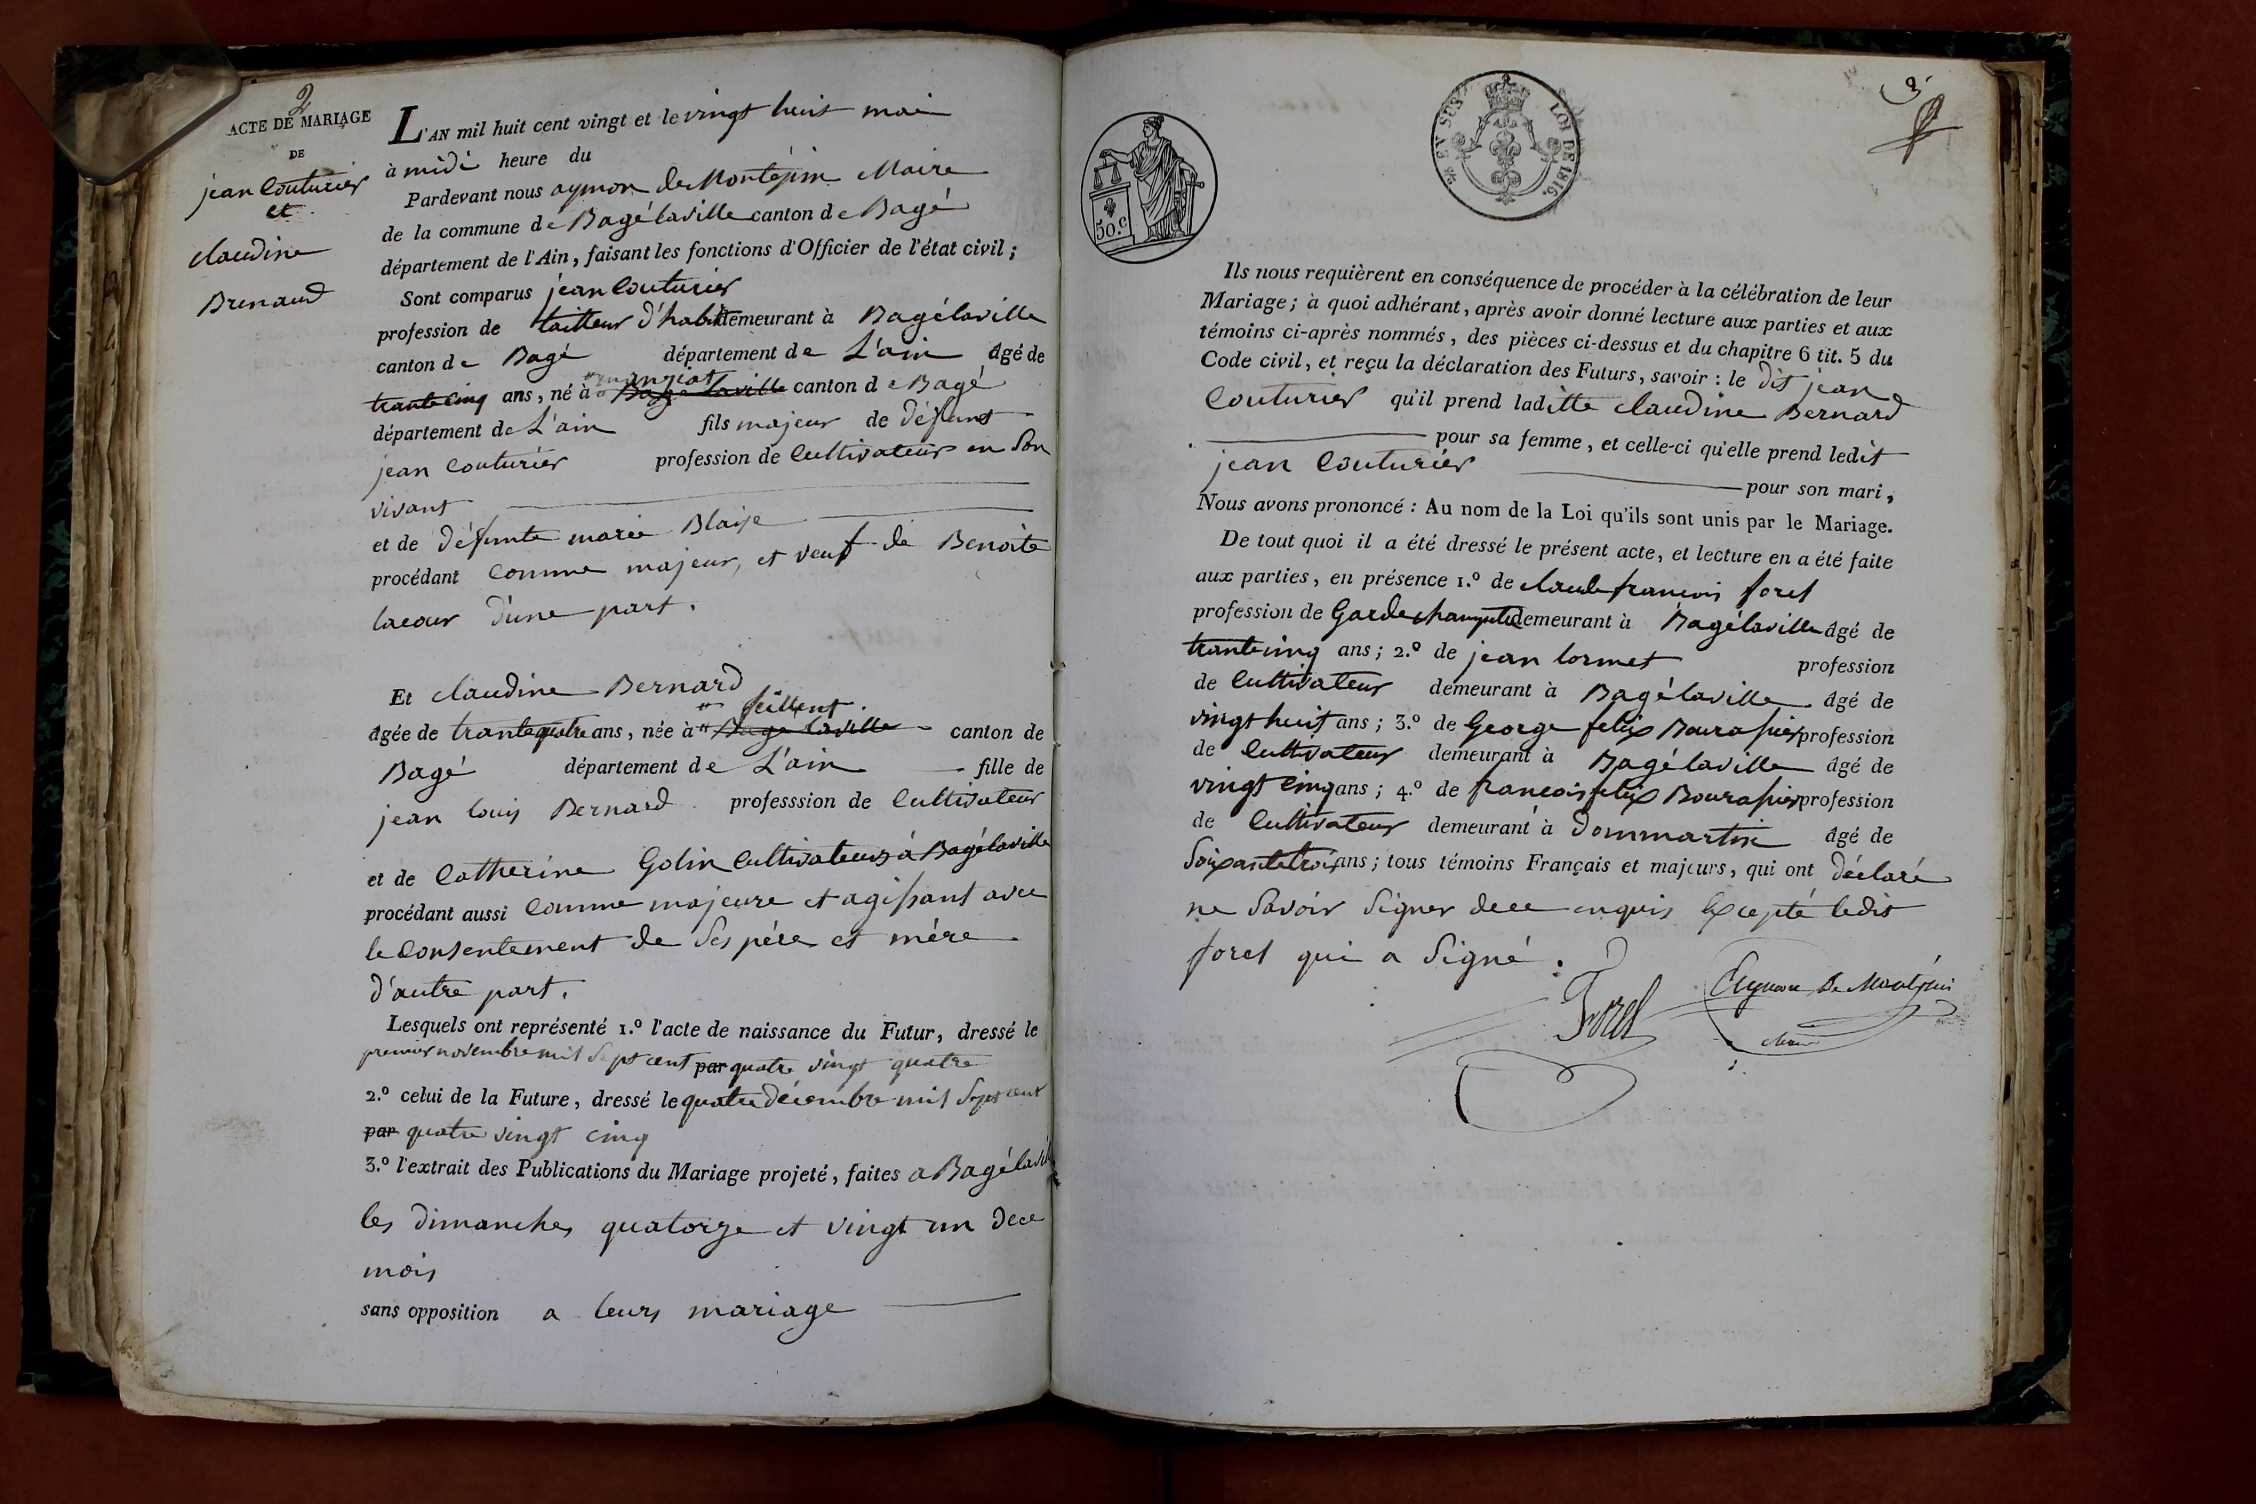 2
ACTE DE MARIAGE
DE
jean Couturier
et
claudine
Brenaud
L'AN mil huit cent vingt et le vingt huit mai
à midi heure du
Pardevant nous aymon de Montépin Maire
de la commune de Bagélaville canton de Bagé
département de l'Ain, faisant les fonctions d'Officier de l'état civil ;
Sont comparus jean Couturier
profession de tailleur d'habit demeurant à Bagélaville
canton de Bagé département de L'ain âgé de
manziat
trante cinq ans, né à Bagé laville canton de Bagé
département de L'ain fils majeur de défunt
jean Couturier profession de Cultivateur en Son
vivant
et de défunte marie Blaise
procédant Comme majeur, et veuf de Benoite
lacour d'une part.
Et claudine Bernard
feillent
âgée de trante quatre ans, née à Bagé laville canton de
Bagé département de L'ain fille de
jean louis Bernard professsion de Cultivateur
et de Catherine Golin Cultivateurs à Bagélaville
procédant aussi Comme majeure et agissant avec
le Consentement de Ses père et mère
d'autre part.
Lesquels ont représenté 1.º l'acte de naissance du Futur, dressé le
premier novembre mil Sept cent par quatre vingt quatre
2.º celui de la Future, dressé le quatre décembre mil Sept cent
par quatre vingt cinq
3.º l'extrait des Publications du Mariage projeté, faites a Bagélaville
les dimanches quatorze et vingt un dece
mois
sans opposition a leurs mariage
3
50.c
EN SUS
LOI DE 1816.
Ils nous requièrent en conséquence de procéder à la célébration de leur
Mariage ; à quoi adhérant, après avoir donné lecture aux parties et aux
témoins ci-après nommés, des pièces ci-dessus et du chapitre 6 tit. 5 du
Code civil, et reçu la déclaration des Futurs, savoir : le dit jean
Couturier qu'il prend laditte claudine Bernard
pour sa femme, et celle-ci qu'elle prend ledit
jean Couturier
pour son mari,
Nous avons prononcé : Au nom de la Loi qu'ils sont unis par le Mariage.
De tout quoi il a été dressé le présent acte, et lecture en a été faite
aux parties, en présence 1.º de claude francois forel
profession de Garde champetre demeurant à Bagélaville âgé de
trante cinq ans ; 2.º de jean lormet profession
de Cultivateur demeurant à Bagélaville âgé de
vingt huit ans ; 3.º de George felix profession
de Cultivateur demeurant à Bagélaville âgé de
vingt cinq ans ; 4.º de francois felix profession
de Cultivateur demeurant à dommartin âgé de
Soixante trois ans ; tous témoins Français et majeurs, qui ont déclaré
ne Savoir Signer dece enquis Excepté ledit
forel qui a Signé.
Forel
Aymon de Montépin
Maire